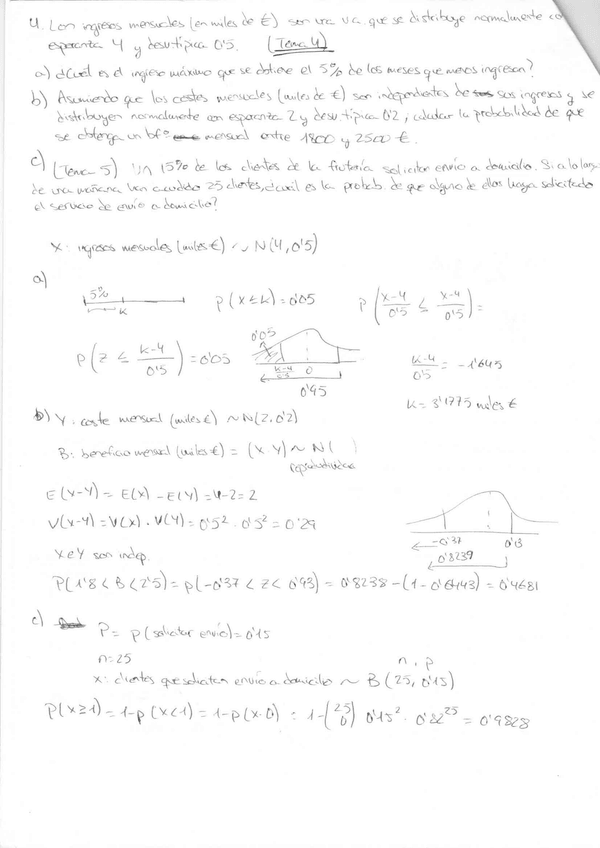 4. Los ingresos mensuales (en miles de €) son una v.a. que se distribuye normalmente con
esperanza 4 y desv. típica 0'5. (Tema 4)
a) ¿Cuál es el ingreso máximo que se obtiene el 5% de los meses que menos ingresan?
b) Asumiendo que los costes mensuales (miles de €) son independientes de sus ingresos y se
distribuyen normalmente con esperanza 2 y desv típica 0'2, calcular la probabilidad de que
se obtenga un bfº mensual entre 1800 y 2500 €.
c) (Tema 5) Un 15% de los clientes de la frutería solicitan envío a domicilio. Si a lo largo
de una mañana han acudido 25 clientes, ¿cuál es la probab. de que alguno de ellos haya solicitado
el servicio de envío a domicilio?
X: ingresos mensuales (miles €) ~ N(4, 0'5)
a)
5%
k
P(X ≤ k) = 0'05
P((X-4)/0'5 ≤ (X-4)/0'5) =
P(Z ≤ (k-4)/0'5) = 0'05
0'05
(k-4)/0'5 0
0'95
(k-4)/0'5 = -1'645
k = 3'1775 miles €
b) Y: coste mensual (miles €) ~ N(2, 0'2)
B: beneficio mensual (miles €) = (X-Y) ~ N(
reproductividad
E(X-Y) = E(X) - E(Y) = 4-2 = 2
V(X-Y) = V(X) + V(Y) = 0'5² + 0'2² = 0'29
X e Y son indep.
-0'37
0'8239
P(1'8 < B < 2'5) = P(-0'37 < Z < 0'93) = 0'8238 - (1 - 0'6443) = 0'4681
c)
P = P(solicitar envío) = 0'15
n = 25
n, p
X: clientes que solicitan envío a domicilio ~ B(25, 0'15)
P(X ≥ 1) = 1-P(X<1) = 1-P(X=0) = 1-(25 0) 0'15² · 0'85²⁵ = 0'9828